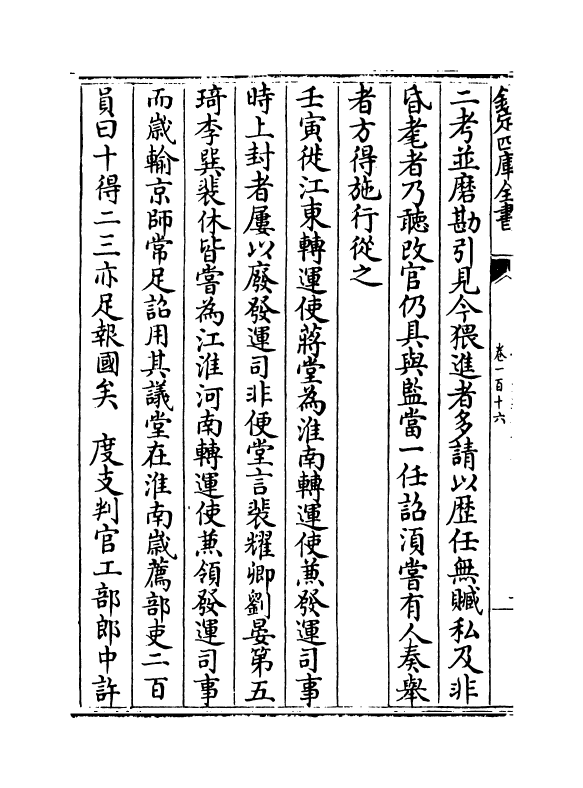 欽定四庫全書
卷一百十六
二考並磨勘引見今猥進者多請以歴任無贓私及非
昏耄者乃聽改官仍具與監當一任詔須嘗有人奏舉
者方得施行從之
壬寅徙江東轉運使蔣堂為淮南轉運使兼發運司事
時上封者屢以廢發運司非便堂言裴耀卿劉晏第五
琦李巽裴休皆嘗為江淮河南轉運使兼領發運司事
而嵗輸京師常足詔用其議堂在淮南嵗薦部吏二百
員曰十得二三亦足報國矣　度支判官工部郎中許